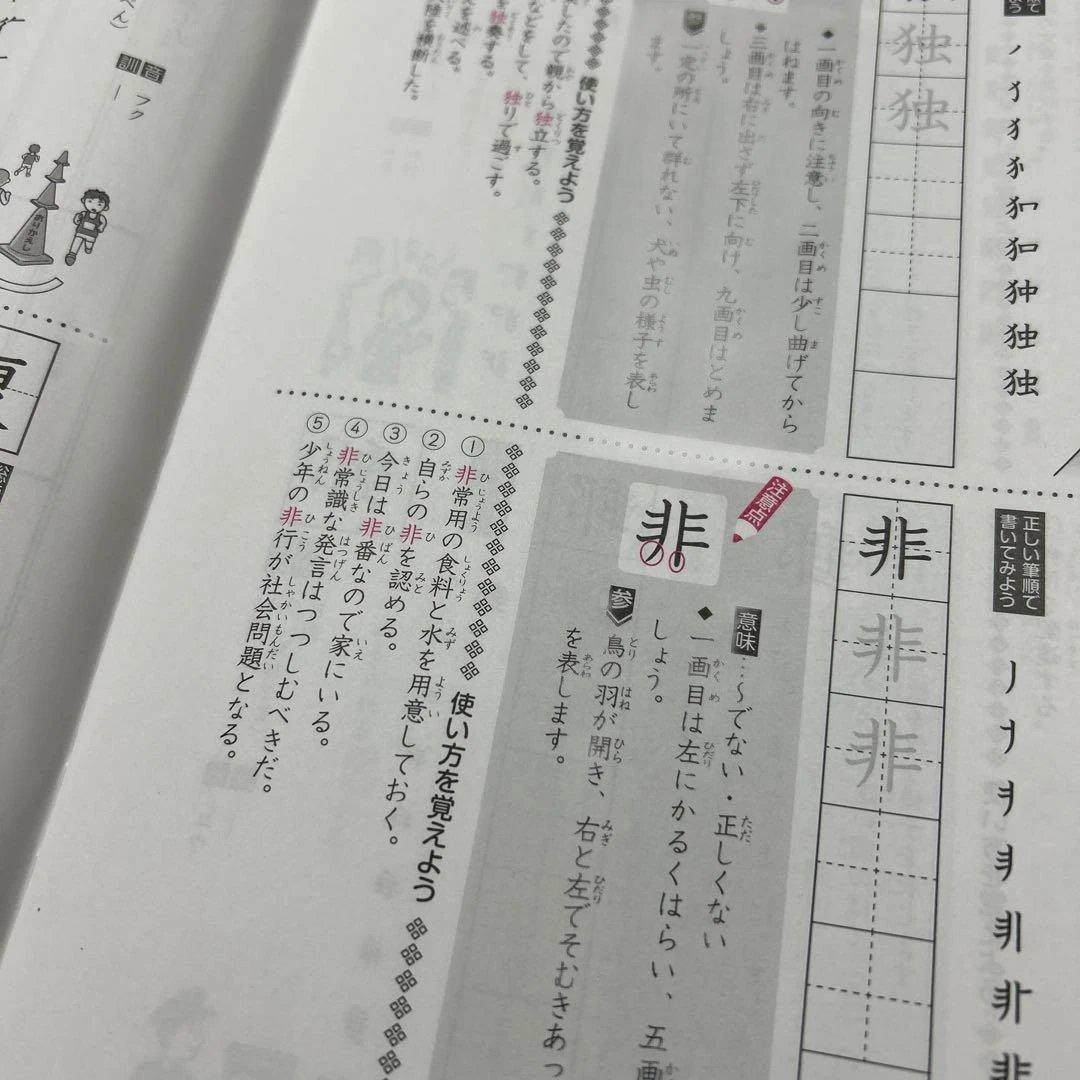 独
独
一画目の向きに注意し、二画目は少し曲げてから
はねます。
三画目は右に出さず左下に向け、九画目はとめま
しょう。
一定の所にいて群れない、犬や虫の様子を表し
ます。
使い方を覚えよう
したので親から独立する。
などをして、独りで過ごす。
を独奏する。
を述べる。
陸を横断した。
音 フク
訓 ー
ありがえし
正しい筆順で
書いてみよう
非
非
非
注意点
非
意味…～でない・正しくない
一画目は左にかるくはらい、五画
しょう。
参 鳥の羽が開き、右と左でそむきあっ
を表します。
使い方を覚えよう
① 非常用の食料と水を用意しておく。
② 自らの非を認める。
③ 今日は非番なので家にいる。
④ 非常識な発言はつつしむべきだ。
⑤ 少年の非行が社会問題となる。